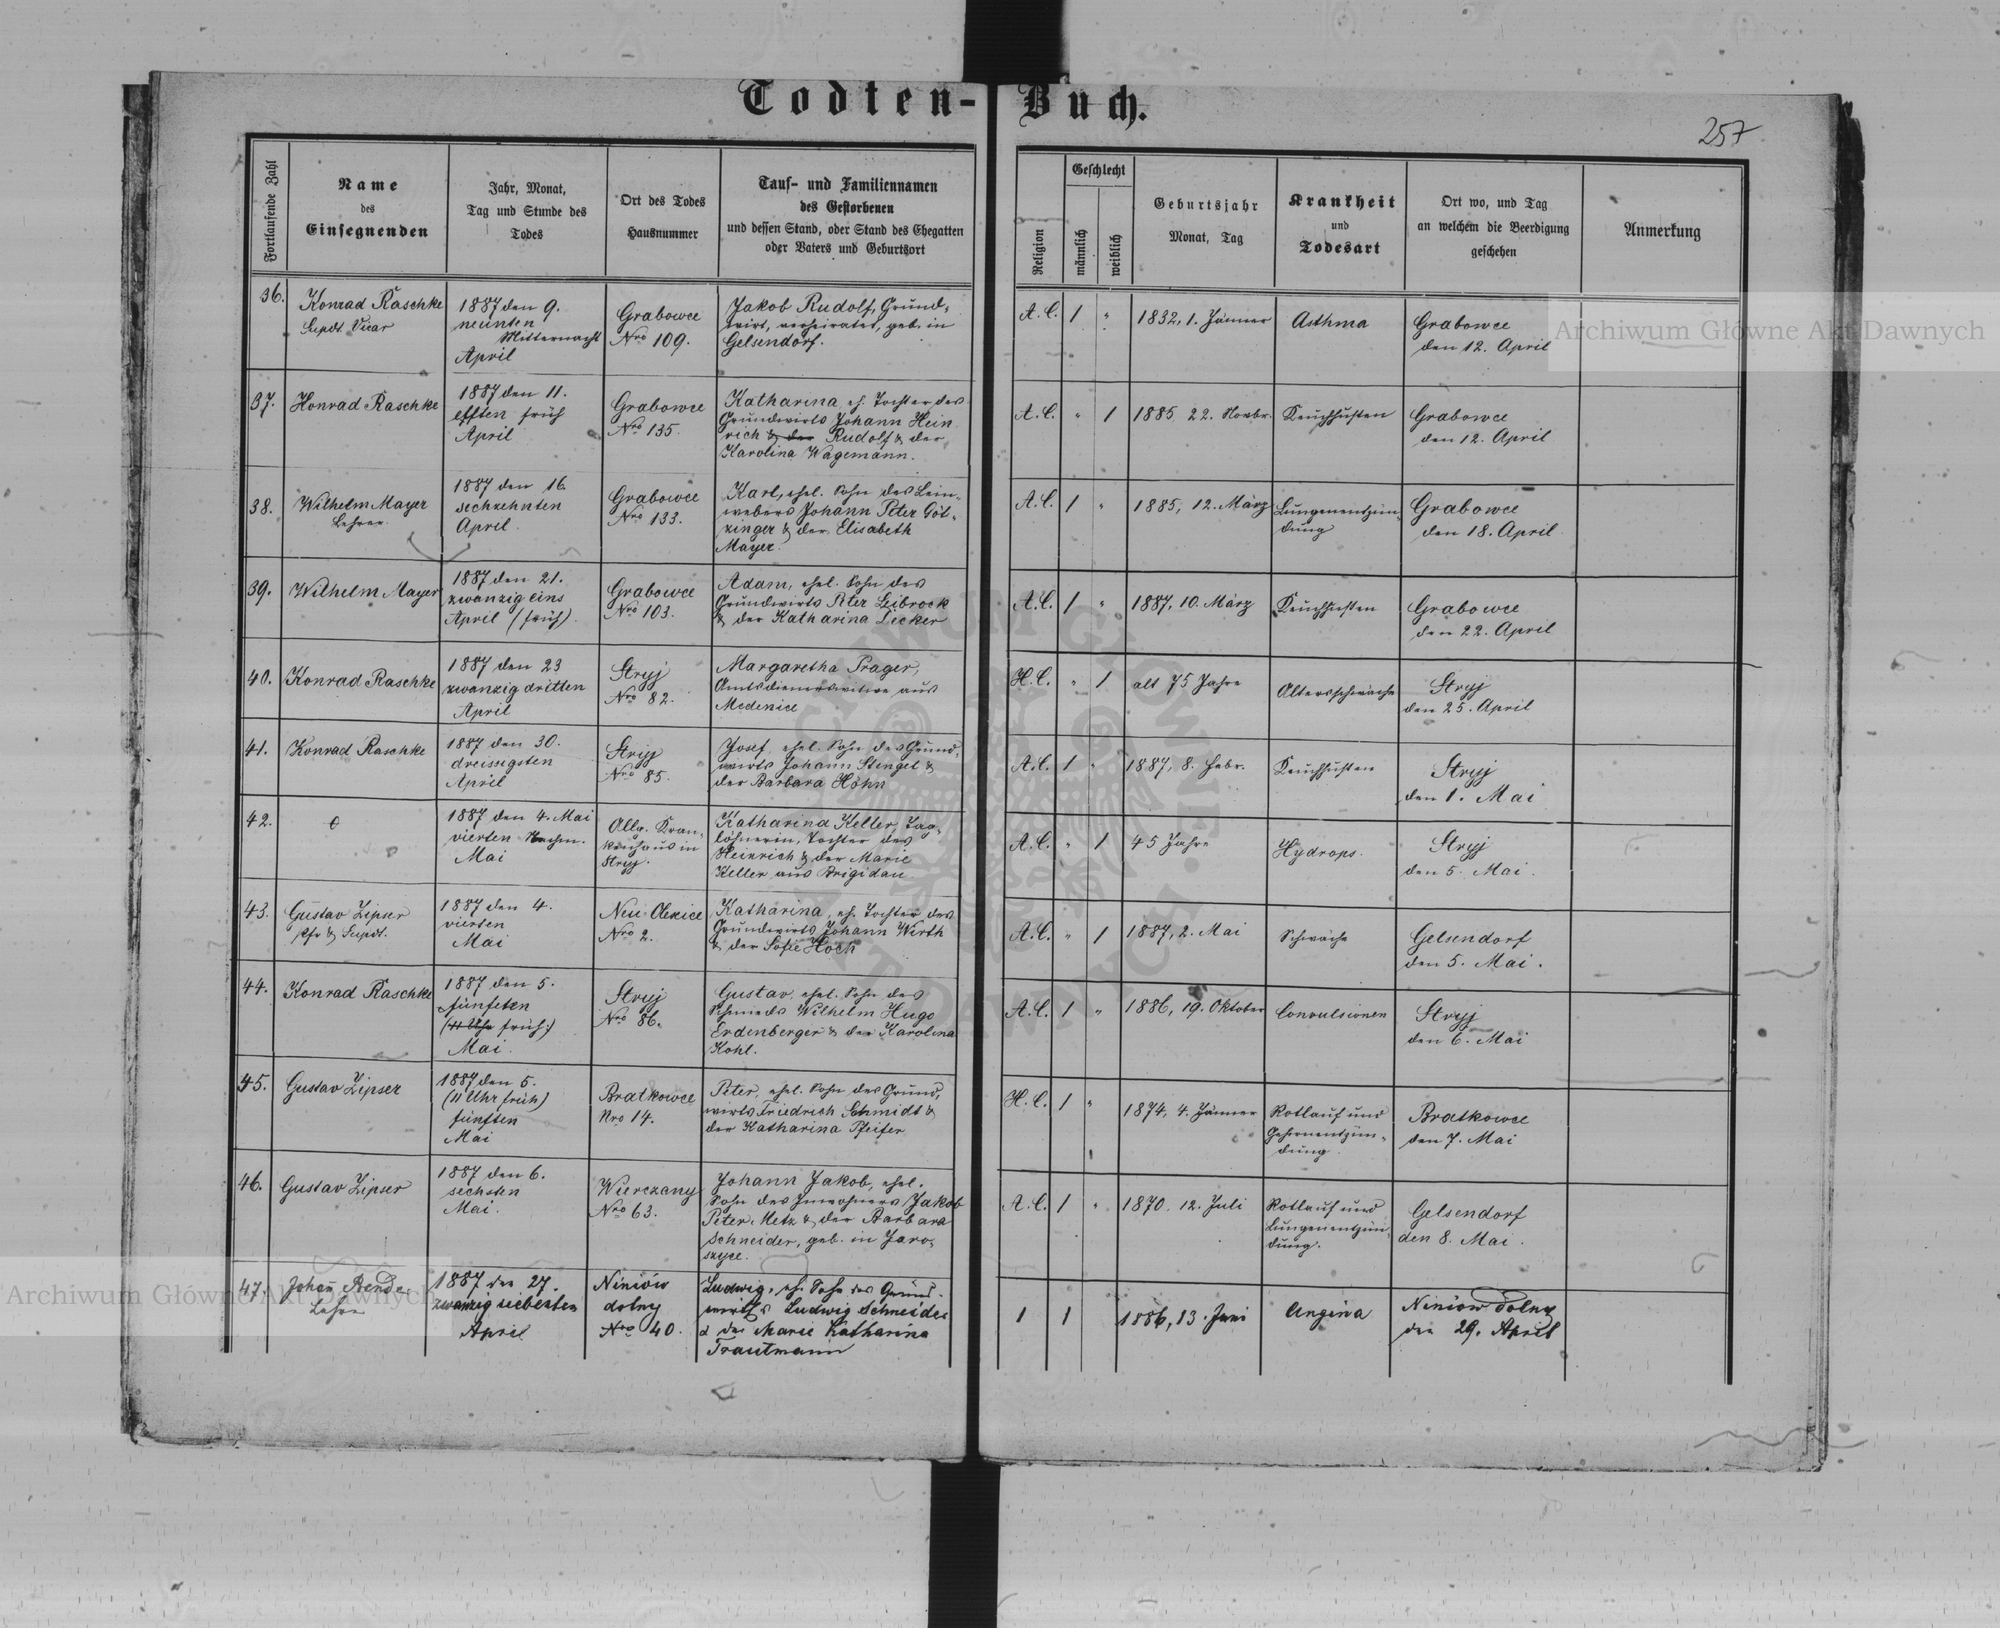 Todten-Buch.
257
Fortlaufende Zahl
Name
des
Einsegnenden
Jahr, Monat,
Tag und Stunde des
Todes
Ort des Todes
Hausnummer
Tauf- und Familiennamen
des Gestorbenen
und dessen Stand, oder Stand des Ehegatten
oder Vaters und Geburtsort
Religion
Geschlecht
männlich
weiblich
Geburtsjahr
Monat, Tag
Krankheit
und
Todesart
Ort wo, und Tag
an welchem die Beerdigung
geschehen
Anmerkung
36.
Konrad Raschke
Supdt. Vicar
1887 den 9.
neunten
Mitternacht
April
Grabowce
Nro 109.
Jakob Rudolf, Grund-
wirt, verheiratet, geb. in
Gelsendorf.
A. C.
1
"
1832, 1. Jänner
Asthma
Grabowce
den 12. April
37.
Konrad Raschke
1887 den 11.
elften früh
April
Grabowce
Nro 135.
Katharina, eh. Tochter des
Grundwirts Johann Hein
rich & der Rudolf & der
Karolina Wagemann.
A. C.
"
1
1885 22. Novbr.
Keuchhusten
Grabowce
den 12. April
38.
Wilhelm Mayer
Lehrer
1887 den 16.
sechzehnten
April
Grabowce
Nro 133.
Karl, ehel. Sohn des Lein-
webers Johann Peter Göt-
zinger & der Elisabeth
Mayer.
A. C.
1
"
1885, 12. März
Lungenentzün-
dung
Grabowce
den 18. April
39.
Wilhelm Mayer
1887 den 21.
zwanzig eins
April (früh).
Grabowce
Nro 103.
Adam, ehel. Sohn des
Grundwirts Peter Leibrock
& der Katharina Lecker
A. C.
1
"
1887, 10. März
Keuchhusten
Grabowce
den 22. April
40.
Konrad Raschke
1887 den 23
zwanzig dritten
April
Stryj
Nro 82.
Margaretha Prager,
Amtsdienerswitwe aus
Medenice
H. C.
"
1
alt 75 Jahre
Altersschwäche
Stryj
den 25. April
41.
Konrad Raschke
1887 den 30.
dreissigsten
April
Stryj
Nro 85.
Josef, ehel. Sohn des Grund-
wirts Johann Stengel &
der Barbara Höhn
A. C.
1
"
1887, 8. Febr.
Keuchhusten
Stryj
den 1. Mai
42.
1887 den 4. Mai
vierten Nachm.
Mai
Allg. Kran-
kenhaus in
Stryj.
Katharina Keller, Tag-
löhnerin, Tochter des
Heinrich & der Marie
Keller aus Brigidau
A. C.
"
1
45 Jahre
Hydrops.
Stryj
den 5. Mai.
43.
Gustav Zipser
Pfr & Supdt.
1887 den 4.
vierten
Mai
Neu Olexice
Nro 2.
Katharina, eh. Tochter des
Grundwirts Johann Wirth
& der Sofie Hoch
A. C.
"
1
1887, 2. Mai
Schwäche
Gelsendorf
den 5. Mai.
44.
Konrad Raschke
1887 den 5.
fünften
(11 Uhr früh)
Mai.
Stryj
Nro 86.
Gustav, ehel. Sohn des
Schmieds Wilhelm Hugo
Erdenberger & der Karolina
Kohl.
A. C.
1
"
1886, 19. Oktober
Convulsionen
Stryj
den 6. Mai
45.
Gustav Zipser
1887 den 5.
(11 Uhr früh)
fünften
Mai
Bratkowce
Nro 14.
Peter, ehel. Sohn des Grund,
wirts Friedrich Schmidt &
der Katharina Pfeifer
H. C.
1
"
1874, 4. Jänner
Rotlauf und
Gehirnentzün-
dung.
Bratkowce
den 7. Mai
46.
Gustav Zipser
1887 den 6.
sechsten
Mai.
Wierczany
Nro 63.
Johann Jakob, ehel.
Sohn des Inwohners Jakob
Peter Metz & der Barbara
Schneider, geb. in Jaro-
szyce.
A. C.
1
"
1870. 12. Juli
Rotlauf und
Lungenentzün
dung.
Gelsendorf
den 8. Mai.
47.
Johann Bender
Lehrer
1887 den 27.
zwanzig siebenten
April
Niniów
dolny
Nro 40.
Ludwig, eh. Sohn des Grund-
wirths Ludwig Schneider
& der Marie Katharina
Trautmann
1
1
1886, 13. Juni
Angina
Niniow dolny
den 29. April
Archiwum Główne Akt Dawnych
Archiwum Główne Akt Dawnych